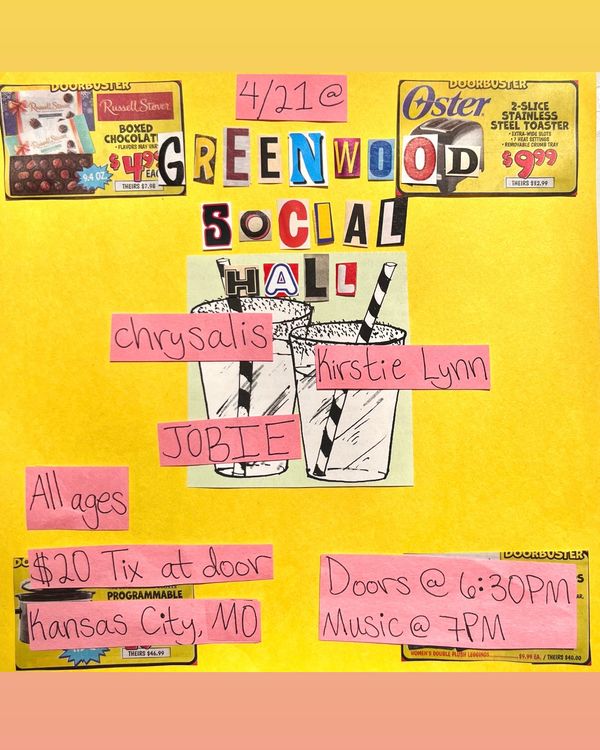 4/21@
DOORBUSTER
Russell Stover
Russell Stover
BOXED
CHOCOLAT
• FLAVORS MAY VAR
$4.99
EAC
9.4 OZ.
THEIRS $7.98
DOORBUSTER
Oster
2-SLICE
STAINLESS
STEEL TOASTER
• EXTRA-WIDE SLOTS
• 7 HEAT SETTINGS
• REMOVABLE CRUMB TRAY
$9.99
EAC
THEIRS $12.99
GREENWOOD
SOCIAL
HALL
chrysalis
Kirstie Lynn
JOBIE
All ages
DO
$20 Tix at door
PROGRAMMABLE
Kansas City, MO
THEIRS $46.99
DOORBUSTER
S
Doors @ 6:30PM
Music @ 7PM
WOMEN'S DOUBLE PLUSH LEGGINGS
$9.99 EA. / THEIRS $40.00